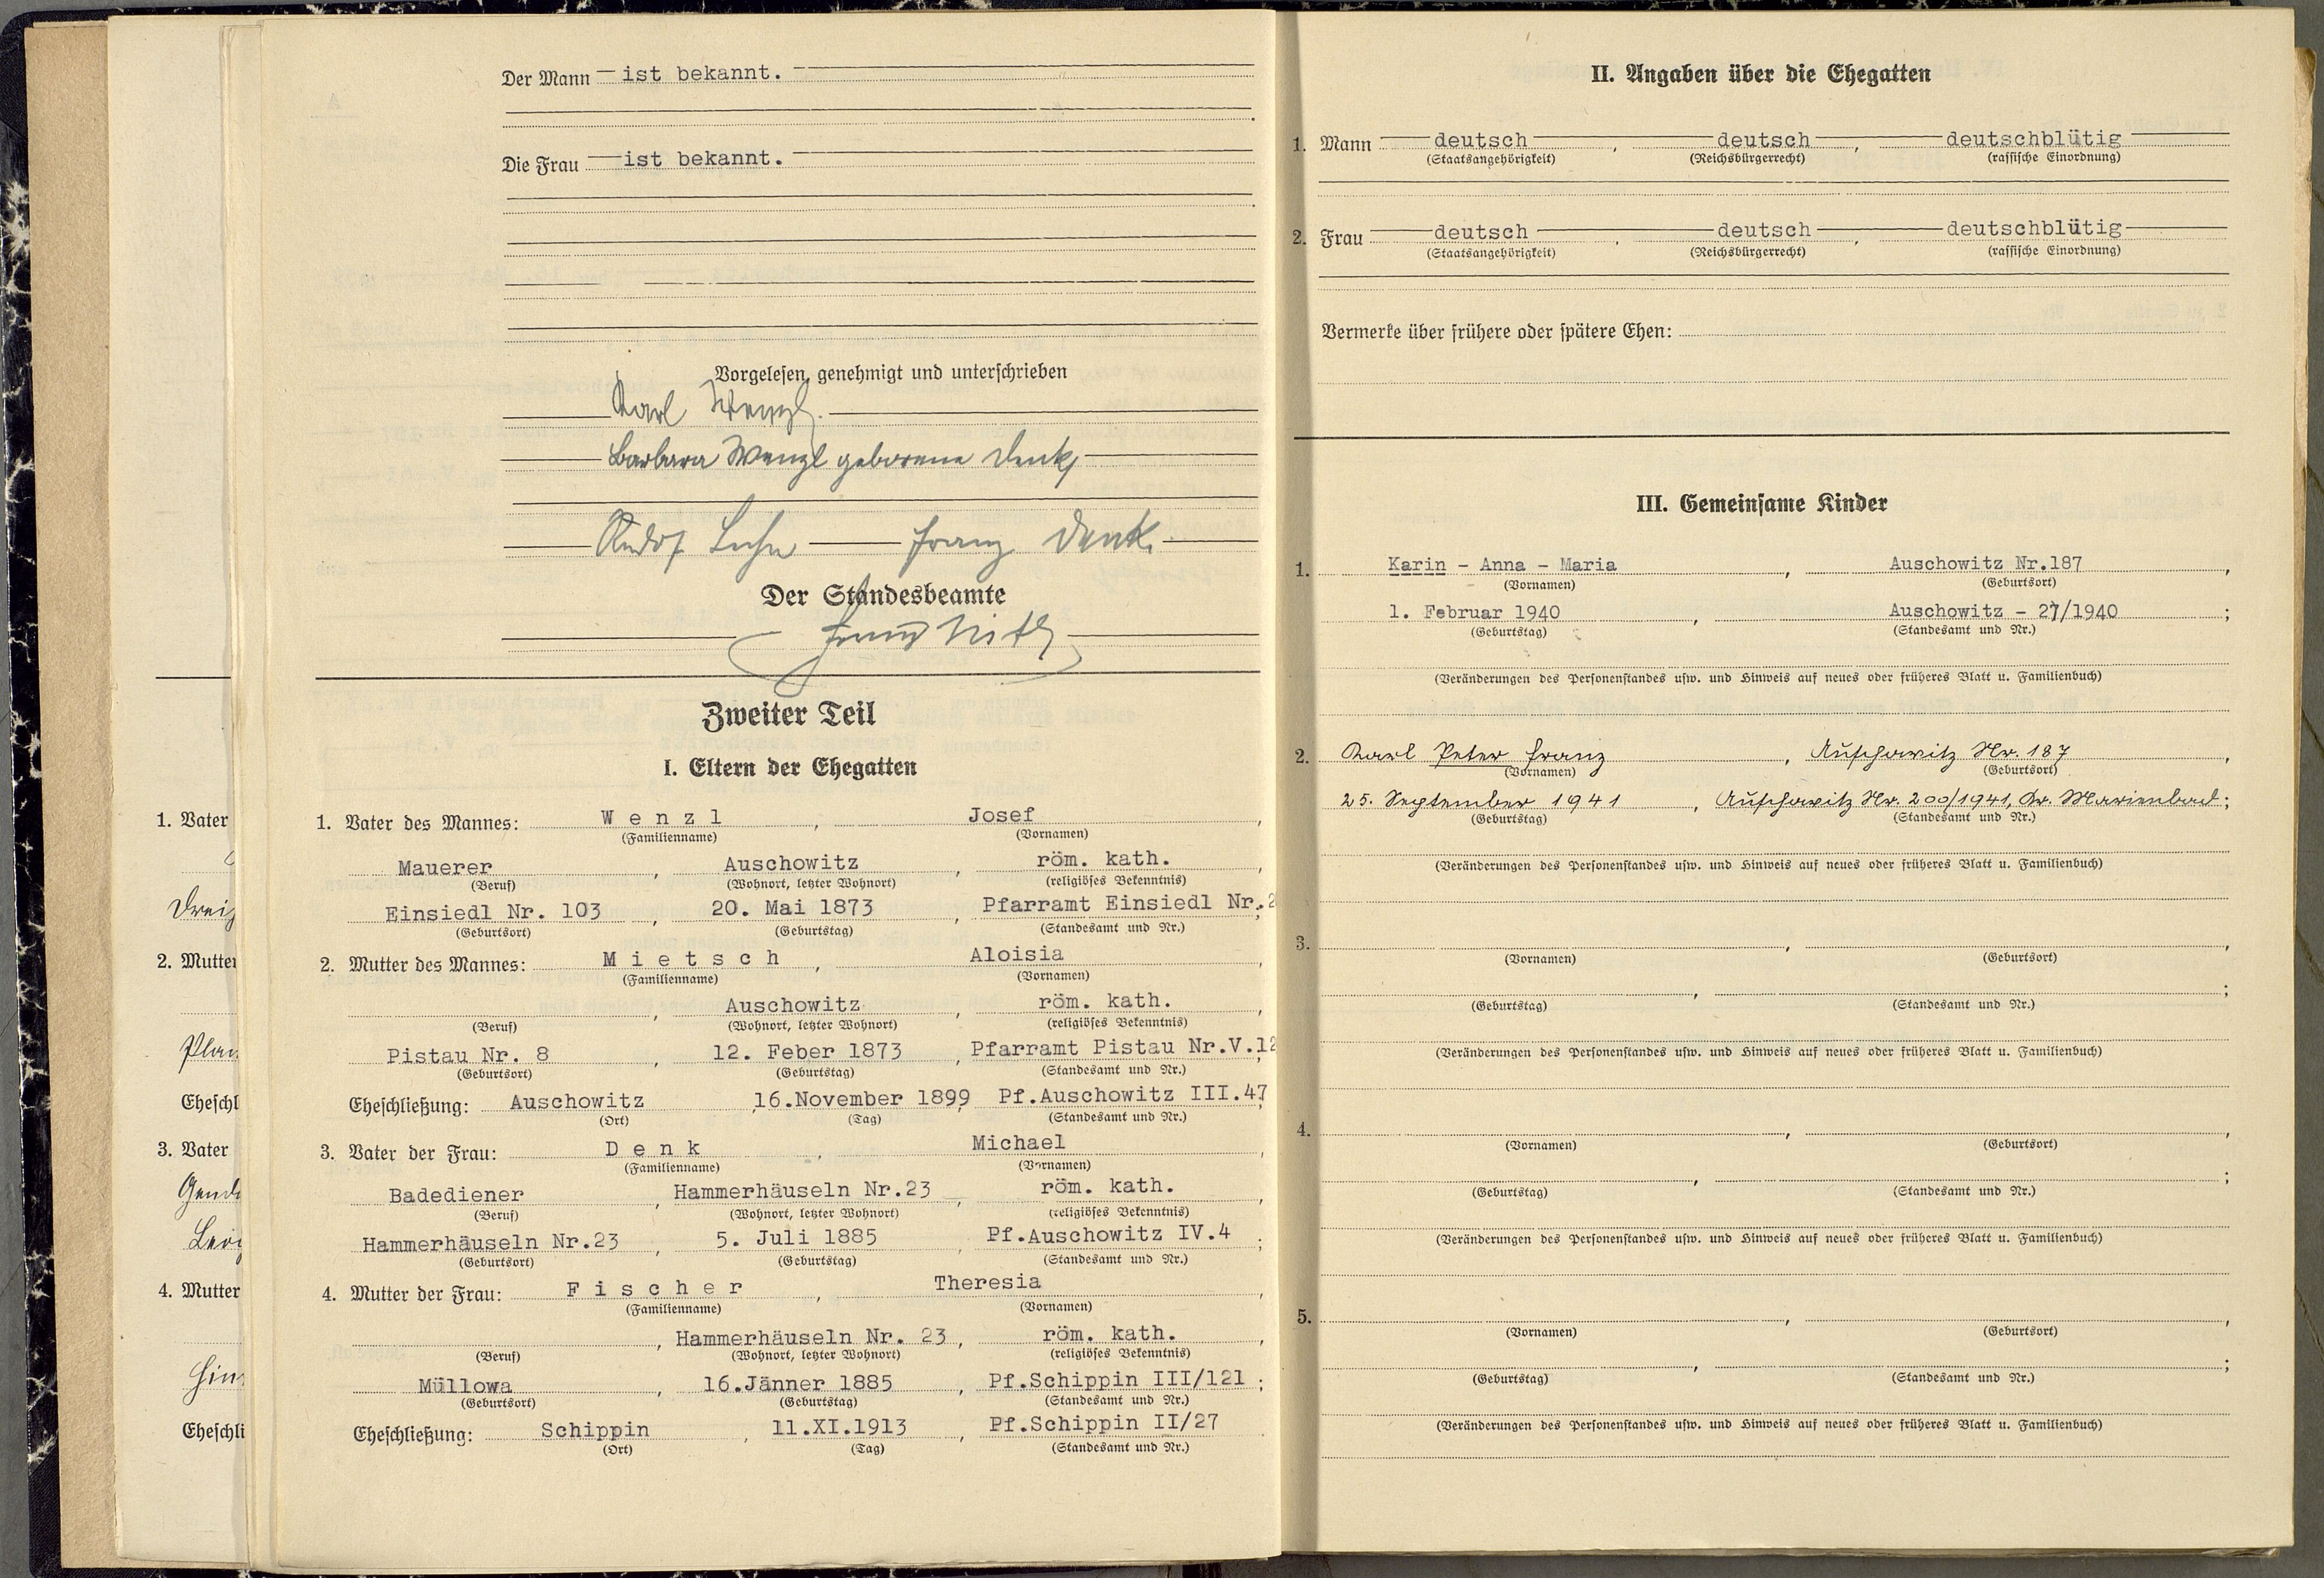 Der Mann ist bekannt.
Die Frau ist bekannt.
Vorgelesen, genehmigt und unterschrieben
Karl Wenzl.
Barbara Wenzl geborene Denk
Franz Denk.
Der Standesbeamte
Zweiter Teil
I. Eltern der Ehegatten
1. Vater des Mannes: Wenzl, Josef,
(Familienname) (Vornamen)
Mauerer, Auschowitz, röm. kath.
(Beruf) (Wohnort, letzter Wohnort) (religiöses Bekenntnis)
Einsiedl Nr. 103, 20. Mai 1873, Pfarramt Einsiedl Nr.
(Geburtsort) (Geburtstag) (Standesamt und Nr.)
2. Mutter des Mannes: Mietsch, Aloisia,
(Familienname) (Vornamen)
, Auschowitz, röm. kath.,
(Beruf) (Wohnort, letzter Wohnort) (religiöses Bekenntnis)
Pistau Nr. 8, 12. Feber 1873, Pfarramt Pistau Nr.V.12
(Geburtsort) (Geburtstag) (Standesamt und Nr.)
Eheschließung: Auschowitz, 16.November 1899, Pf.Auschowitz III.47;
(Ort) (Tag) (Standesamt und Nr.)
3. Vater der Frau: Denk, Michael,
(Familienname) (Vornamen)
Badediener, Hammerhäuseln Nr.23, röm. kath.,
(Beruf) (Wohnort, letzter Wohnort) (religiöses Bekenntnis)
Hammerhäuseln Nr.23, 5. Juli 1885, Pf.Auschowitz IV.4;
(Geburtsort) (Geburtstag) (Standesamt und Nr.)
4. Mutter der Frau: Fischer, Theresia,
(Familienname) (Vornamen)
, Hammerhäuseln Nr. 23, röm. kath.,
(Beruf) (Wohnort, letzter Wohnort) (religiöses Bekenntnis)
Müllowa, 16.Jänner 1885, Pf.Schippin III/121;
(Geburtsort) (Geburtstag) (Standesamt und Nr.)
Eheschließung: Schippin, 11.XI.1913, Pf.Schippin II/27
(Ort) (Tag) (Standesamt und Nr.)
1. Vater
2. Mutter
Eheschl
3. Vater
4. Mutter
Eheschli
II. Angaben über die Ehegatten
1. Mann deutsch, deutsch, deutschblütig
(Staatsangehörigkeit) (Reichsbürgerrecht) (rassische Einordnung)
2. Frau deutsch, deutsch, deutschblütig
(Staatsangehörigkeit) (Reichsbürgerrecht) (rassische Einordnung)
Vermerke über frühere oder spätere Ehen:
III. Gemeinsame Kinder
1. Karin - Anna - Maria, Auschowitz Nr.187,
(Vornamen) (Geburtsort)
1. Februar 1940, Auschowitz - 27/1940;
(Geburtstag) (Standesamt und Nr.)
(Veränderungen des Personenstandes usw. und Hinweis auf neues oder früheres Blatt u. Familienbuch)
2. Karl Peter Franz, Auschowitz Nr. 187,
(Vornamen) (Geburtsort)
25. September 1941, Auschowitz Nr. 200/1941, Kr. Marienbad;
(Geburtstag) (Standesamt und Nr.)
(Veränderungen des Personenstandes usw. und Hinweis auf neues oder früheres Blatt u. Familienbuch)
3.
(Vornamen) (Geburtsort)
(Geburtstag) (Standesamt und Nr.)
(Veränderungen des Personenstandes usw. und Hinweis auf neues oder früheres Blatt u. Familienbuch)
4.
(Vornamen) (Geburtsort)
(Geburtstag) (Standesamt und Nr.)
(Veränderungen des Personenstandes usw. und Hinweis auf neues oder früheres Blatt u. Familienbuch)
5.
(Vornamen) (Geburtsort)
(Geburtstag) (Standesamt und Nr.)
(Veränderungen des Personenstandes usw. und Hinweis auf neues oder früheres Blatt u. Familienbuch)